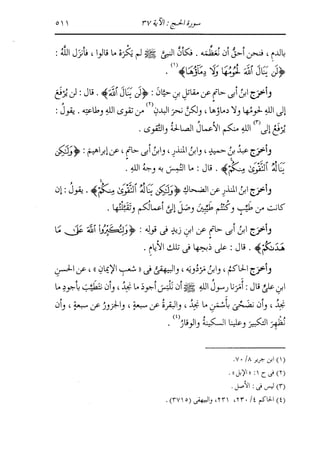 سورة الحج : الآية ٣٧ ٥١١
بالدم ، فنحن أحق أن نعظمه . فكأن النبي ﷺ لم يكره ما قالوا ، فأنزل الله :
﴿لَن يَنَالَ اللَّهَ لُحُومُهَا وَلَا دِمَاؤُهَا﴾(١) .
وأخرج ابن أبي حاتم عن مقاتل بن حيان : ﴿لَن يَنَالَ اللَّهَ﴾ . قال : لن يرفع
إلى الله لحومها ولا دماؤها ، ولكن نحر البدن(٢) من تقوى الله وطاعته . يقول :
يرفع إلى(٣) الله منكم الأعمال الصالحة والتقوى .
وأخرج عبد بن حميد ، وابن المنذر ، وابن أبي حاتم ، عن إبراهيم : ﴿وَلَٰكِن
يَنَالُهُ التَّقْوَىٰ مِنكُمْ﴾ . قال : ما التمس به وجه الله .
وأخرج ابن المنذر عن الضحاك : ﴿وَلَٰكِن يَنَالُهُ التَّقْوَىٰ مِنكُمْ﴾ . يقول : إن
كانت من طيب وكنتم طيبين وصل إلي أعمالكم وتقبلتها .
وأخرج ابن أبي حاتم عن ابن زيد في قوله : ﴿وَلِتُكَبِّرُوا اللَّهَ عَلَىٰ مَا
هَدَاكُمْ﴾ . قال : على ذبحها في تلك الأيام .
وأخرج الحاكم ، وابن مردويه ، والبيهقي في « شعب الإيمان » ، عن الحسن
ابن علي قال : أمرنا رسول الله ﷺ أن نلبس أجود ما نجد ، وأن نتطيب بأجود ما
نجد ، وأن نضحي بأسمن ما نجد ، والبقرة عن سبعة ، والجزور عن سبعة ، وأن
نظهر التكبير وعلينا السكينة والوقار(٤) .
(١) ابن جرير ٨/ ٧٠.
(٢) في ح ١: « الإبل » .
(٣) ليس في : الأصل .
(٤) الحاكم ٤/ ٢٣٠، ٢٣١، والبيهقي (٣٧١٥) .